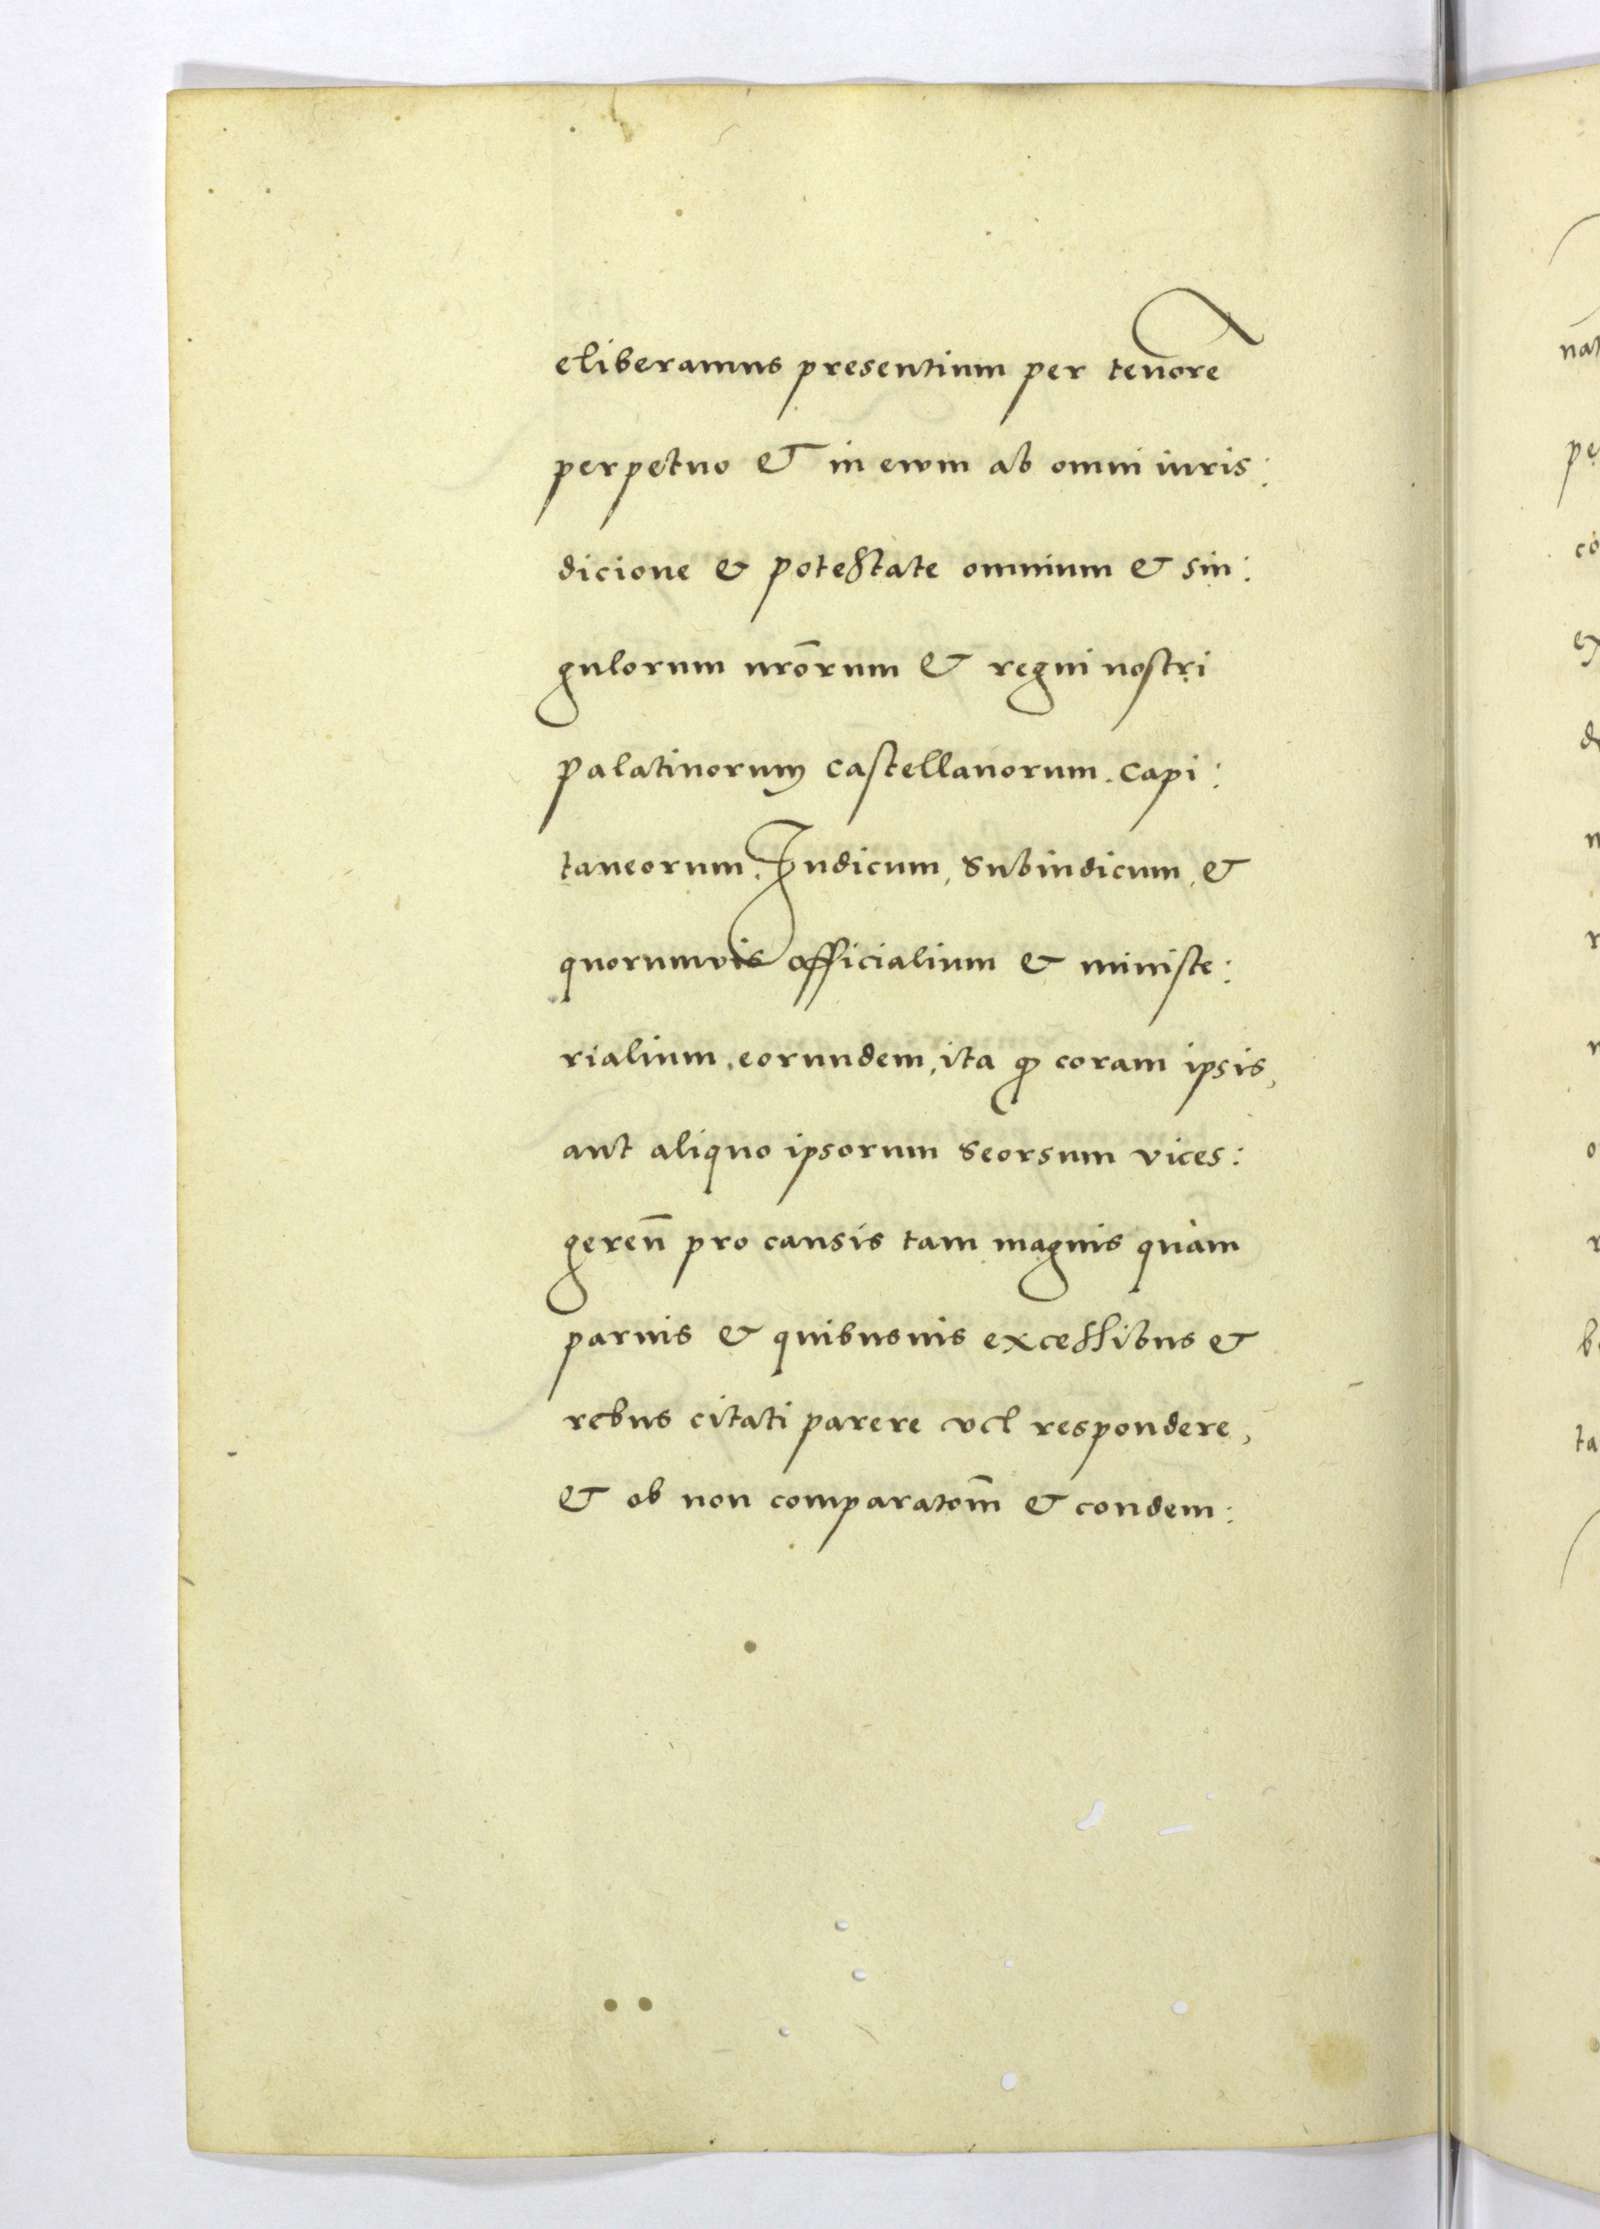 eliberamus presentium per tenorē
perpetuo & in ewm ab omni iuris:
dicione & potestate omnium & sin:
gulorum nrōrum & regni nostri
palatinorum castellanorum. Capi:
taneorum. Iudicum, Subiudicum, &
quorumvis officialium & ministe:
rialium, eorundem, ita ꝙ coram ipsis,
aut aliquo ipsorum seorsum vices:
gereñ pro causis tam magnis quàm
paruis & quibusuis excessibus &
rebus citati parere vel respondere,
& ob non comparatom̄ & condem: